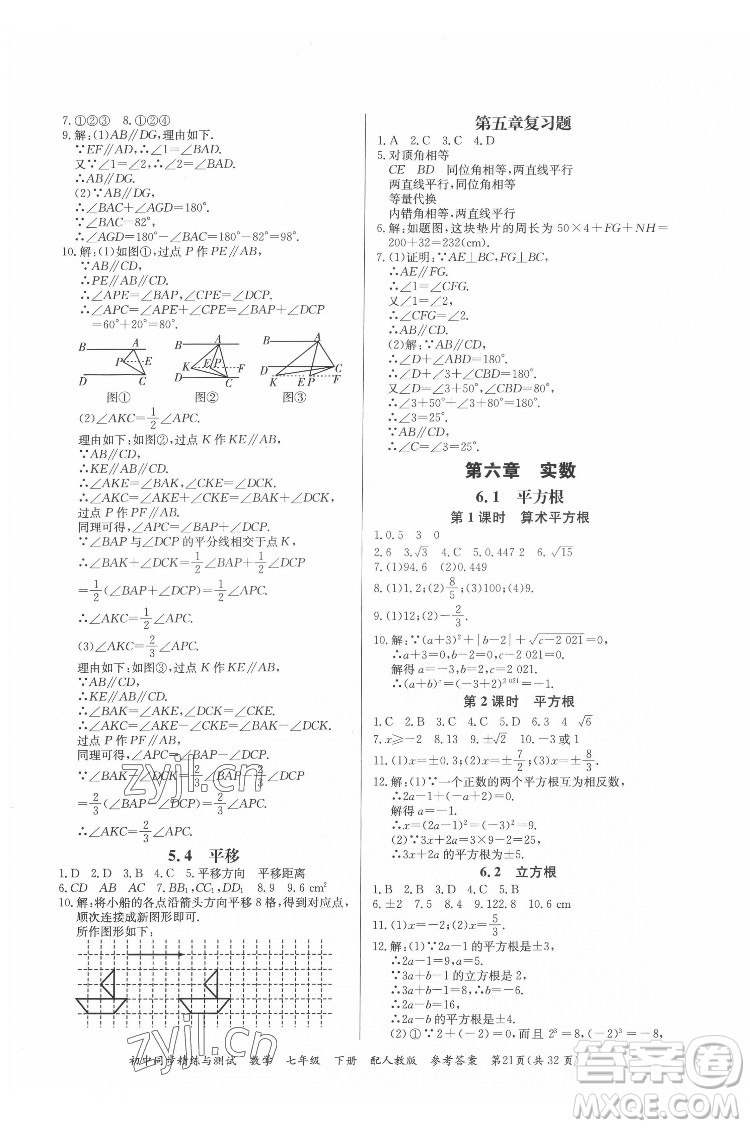 7.①②③ 8.①②④
9.解:(1)AB∥DG,理由如下.
∵EF∥AD,∴∠1=∠BAD.
又∵∠1=∠2,∴∠2=∠BAD.
∴AB∥DG.
(2)∵AB∥DG,
∴∠BAC+∠AGD=180°.
∵∠BAC=82°,
∴∠AGD=180°-∠BAC=180°-82°=98°.
10.解:(1)如图①,过点P作PE∥AB.
∵AB∥CD,
∴PE∥AB∥CD.
∴∠APE=∠BAP,∠CPE=∠DCP.
∴∠APC=∠APE+∠CPE=∠BAP+∠DCP
=60°+20°=80°.
图① 图② 图③
(2)∠AKC=1/2∠APC.
理由如下:如图②,过点K作KE∥AB.
∵AB∥CD,
∴KE∥AB∥CD.
∴∠AKE=∠BAK,∠CKE=∠DCK.
∴∠AKC=∠AKE+∠CKE=∠BAK+∠DCK.
过点P作PF∥AB.
同理可得,∠APC=∠BAP+∠DCP.
∵∠BAP与∠DCP的平分线相交于点K,
∴∠AKC=∠BAK+∠DCK=1/2∠BAP+1/2∠DCP
=1/2(∠BAP+∠DCP)=1/2∠APC.
∴∠AKC=1/2∠APC.
(3)∠AKC=2/3∠APC.
理由如下:如图③,过点K作KE∥AB,
∵AB∥CD,∴KE∥AB∥CD.
∴∠BAK=∠AKE,∠DCK=∠CKE.
∴∠AKC=∠AKE-∠CKE=∠BAK-∠DCK.
过点P作PF∥AB.
同理可得,∠APC=∠BAP-∠DCP.
∵∠BAK=2/3∠BAP,∠DCK=2/3∠DCP,
∴∠AKC=∠BAK-∠DCK=2/3∠BAP-2/3∠DCP
=2/3(∠BAP-∠DCP)=2/3∠APC.
∴∠AKC=2/3∠APC.
5.4 平移
1.D 2.A 3.C 4.D 5.平移方向 平移距离
6.CD AB AC 7.BB₁,CC₁,DD₁ 8.9 9.6 cm²
10.解:将小船的各点沿箭头方向平移8格,得到对应点,
顺次连接成新图形即可.
所作图形如下:
第五章复习题
1.A 2.C 3.C 4.D
5.对顶角相等
CE BD 同位角相等,两直线平行
两直线平行,同位角相等
等量代换
内错角相等,两直线平行
6.解:如题图,这块垫片的周长为50×4+FG+NH=
200+32=232(cm).
7.(1)证明:∵AE⊥BC,FG⊥BC,
∴AE∥FG.
∴∠1=∠CFG.
又∵∠1=∠2,
∴∠CFG=∠2.
∴AB∥CD.
(2)解:∵AB∥CD,
∴∠D+∠ABD=180°.
∴∠D+∠3+∠CBD=180°.
又∵∠D=∠3+50°,∠CBD=80°,
∴∠3+50°+∠3+80°=180°.
∴∠3=25°.
∵AB∥CD,
∴∠C=∠3=25°.
第六章 实数
6.1 平方根
第1课时 算术平方根
1.0.5 3 0
2.6 3.√3 4.C 5.0.447 2 6.√15
7.(1)94.6 (2)0.449
8.(1)1.2;(2)8/5;(3)100;(4)9.
9.(1)12;(2)-2/3.
10.解:∵(a+3)²+|b-2|+√(c-2 021)=0,
∴a+3=0,b-2=0,c-2 021=0.
解得a=-3,b=2,c=2 021.
∴(a+b)ᶜ=(-3+2)²⁰²¹=-1.
第2课时 平方根
1.C 2.B 3.C 4.C 5.D 6.3 4 √6
7.x≥-2 8.13 9.±√2 10.-5或1
11.(1)x=±0.3;(2)x=±7/2;(3)x=±8/3.
12.解:(1)∵一个正数的两个平方根互为相反数,
∴2a-1+(-a+2)=0.
解得a=-1.
∴x=(2a-1)²=(-3)²=9.
(2)∵a=-1,
∴4a+9x=4×(-1)+9×9=77.
6.2 立方根
1.C 2.B 3.A 4.D 5.C
6.±2 7.5 8.4 9.122.8 10.6 cm
11.(1)x=-4;(2)x=-2;(3)x=5/3.
12.解:(1)∵2a-1的平方根是±3,
∴2a-1=9.
∵3a+b-1的立方根是2,
∴3a+b-1=8,
∴2a-b=16,
(2)①∵0+1=0,而且2³=8,(-2)³=-8,
初中同步精练与测试 数学 七年级 下册 配人教版 参考答案 第21页(共32页)
zyjl.cn
zyjl.cn